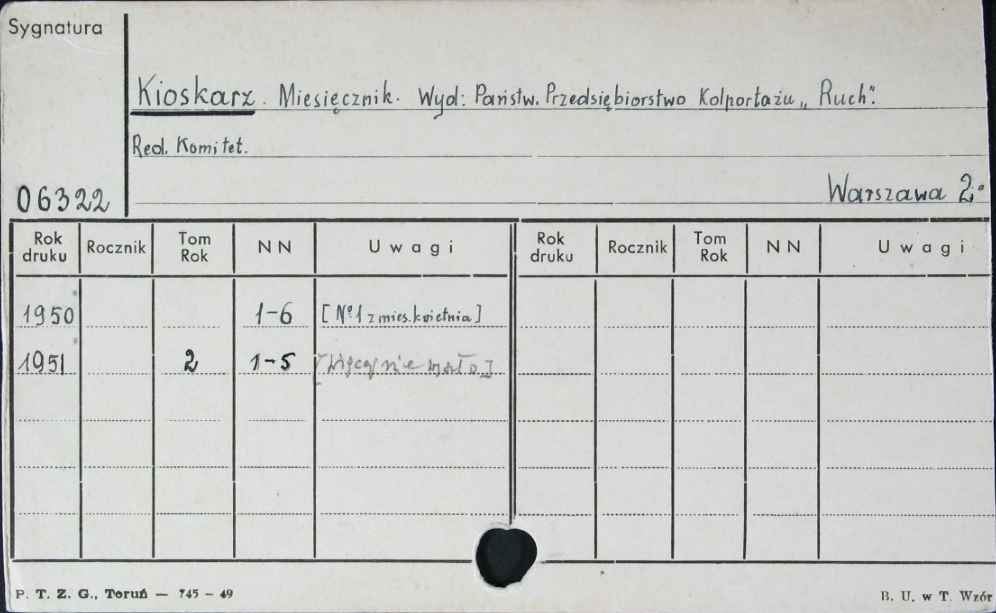 Sygnatura
Kioskarz. Miesięcznik. Wyd: Państw. Przedsiębiorstwo Kolportażu „Ruch".
Red. Komitet.
06322
Warszawa 2.
Rok druku Rocznik Tom Rok NN Uwagi Rok druku Rocznik Tom Rok NN Uwagi
1950 1-6 [Nº1 z mies. kwietnia]
1951 2 1-5 [Więcej nie wyszło]
P. T. Z. G., Toruń — 745 - 49
B. U. w T. Wzór